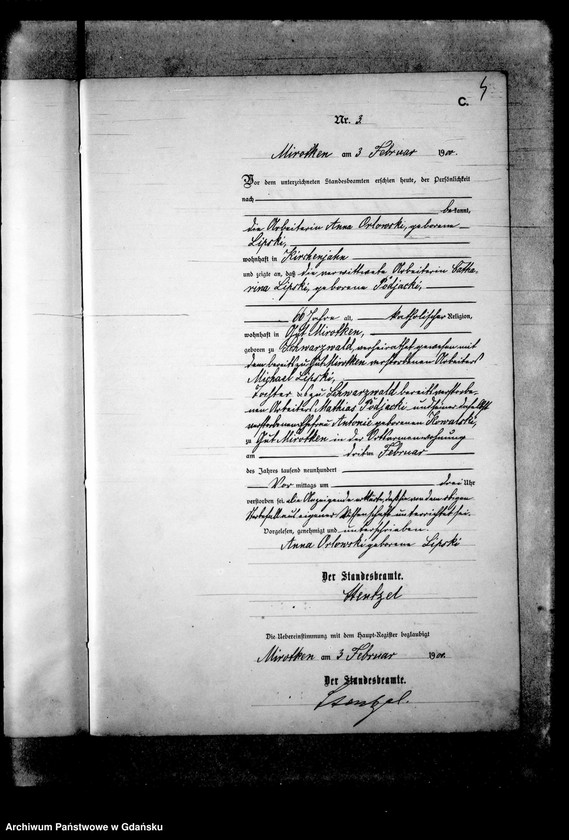 C.
Nr. 3
Mirotken am 3 Februar 1900.
Vor dem unterzeichneten Standesbeamten erschien heute, der Persönlichkeit
nach
bekannt,
die Arbeiterin Anna Orlowski, geborene
Lipski,
wohnhaft in Kirchenjahn
und zeigte an, daß die verwittwete Arbeiterin Catha-
rina Lipski, geborene Podjacki,
60 Jahre alt, katholischer Religion,
wohnhaft in Gut Mirotken,
geboren zu Schwarzwald, verheirathet gewesen mit
dem bereits zu Gut Mirotken verstorbenen Arbeiter
Michael Lipski,
Tochter des zu Schwarzwald bereits verstorbe-
nen Arbeiters Mathias Podjacki und seiner daselbst
verstorbenen Ehefrau Antonie geborenen Kowalski,
zu Gut Mirotken in der Ortsarmenwohnung
am dritten Februar
des Jahres tausend neunhundert
Vor mittags um drei Uhr
verstorben sei. Die Anzeigende erklärte, daß sie von dem obigen
Sterbefall aus eigener Wissenschaft unterrichtet sei.
Vorgelesen, genehmigt und unterschrieben.
Anna Orlowski geborene Lipski
Der Standesbeamte.
Stenzel
Die Uebereinstimmung mit dem Haupt-Register beglaubigt
Mirotken am 3 Februar 1900.
Der Standesbeamte.
Stenzel.
Archiwum Państwowe w Gdańsku